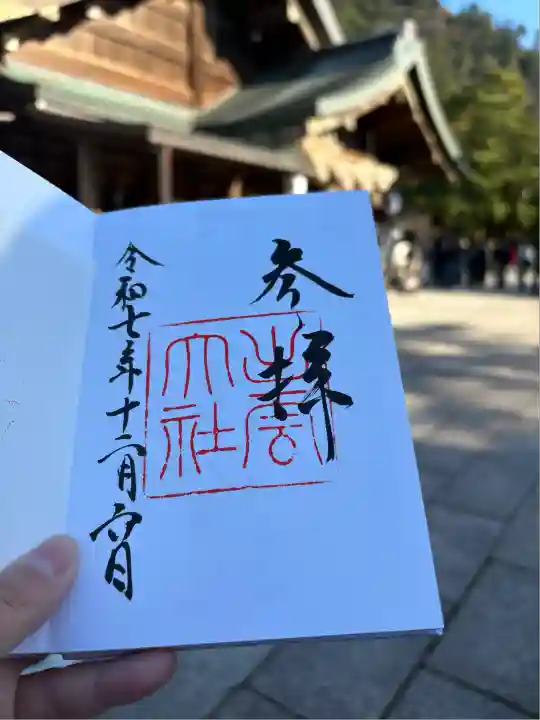 参拝
出雲大社
令和七年十二月六日